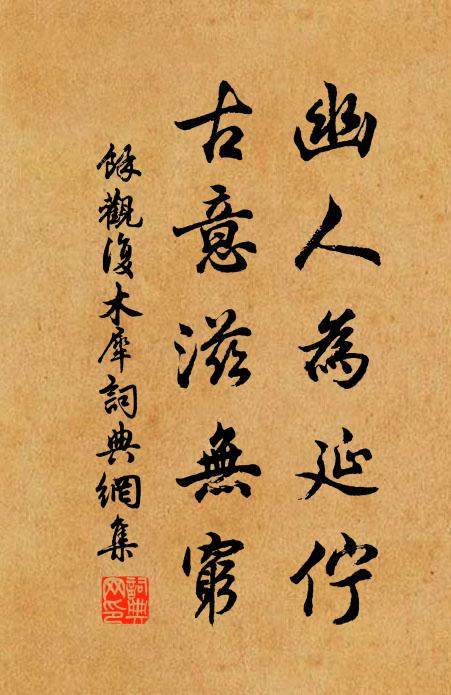 幽人為延佇
古意滋無窮
餘觀復木犀詞典網集
詞典网印